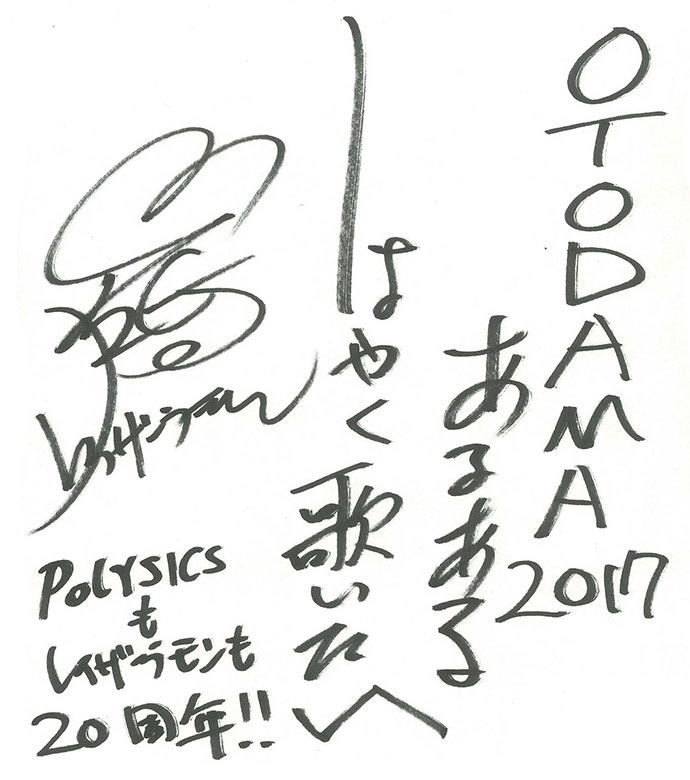 OTODAMA 2017
あるある
はやく歌いたい
レイザラモン
POLYSICS
も
レイザラモンも
20周年!!